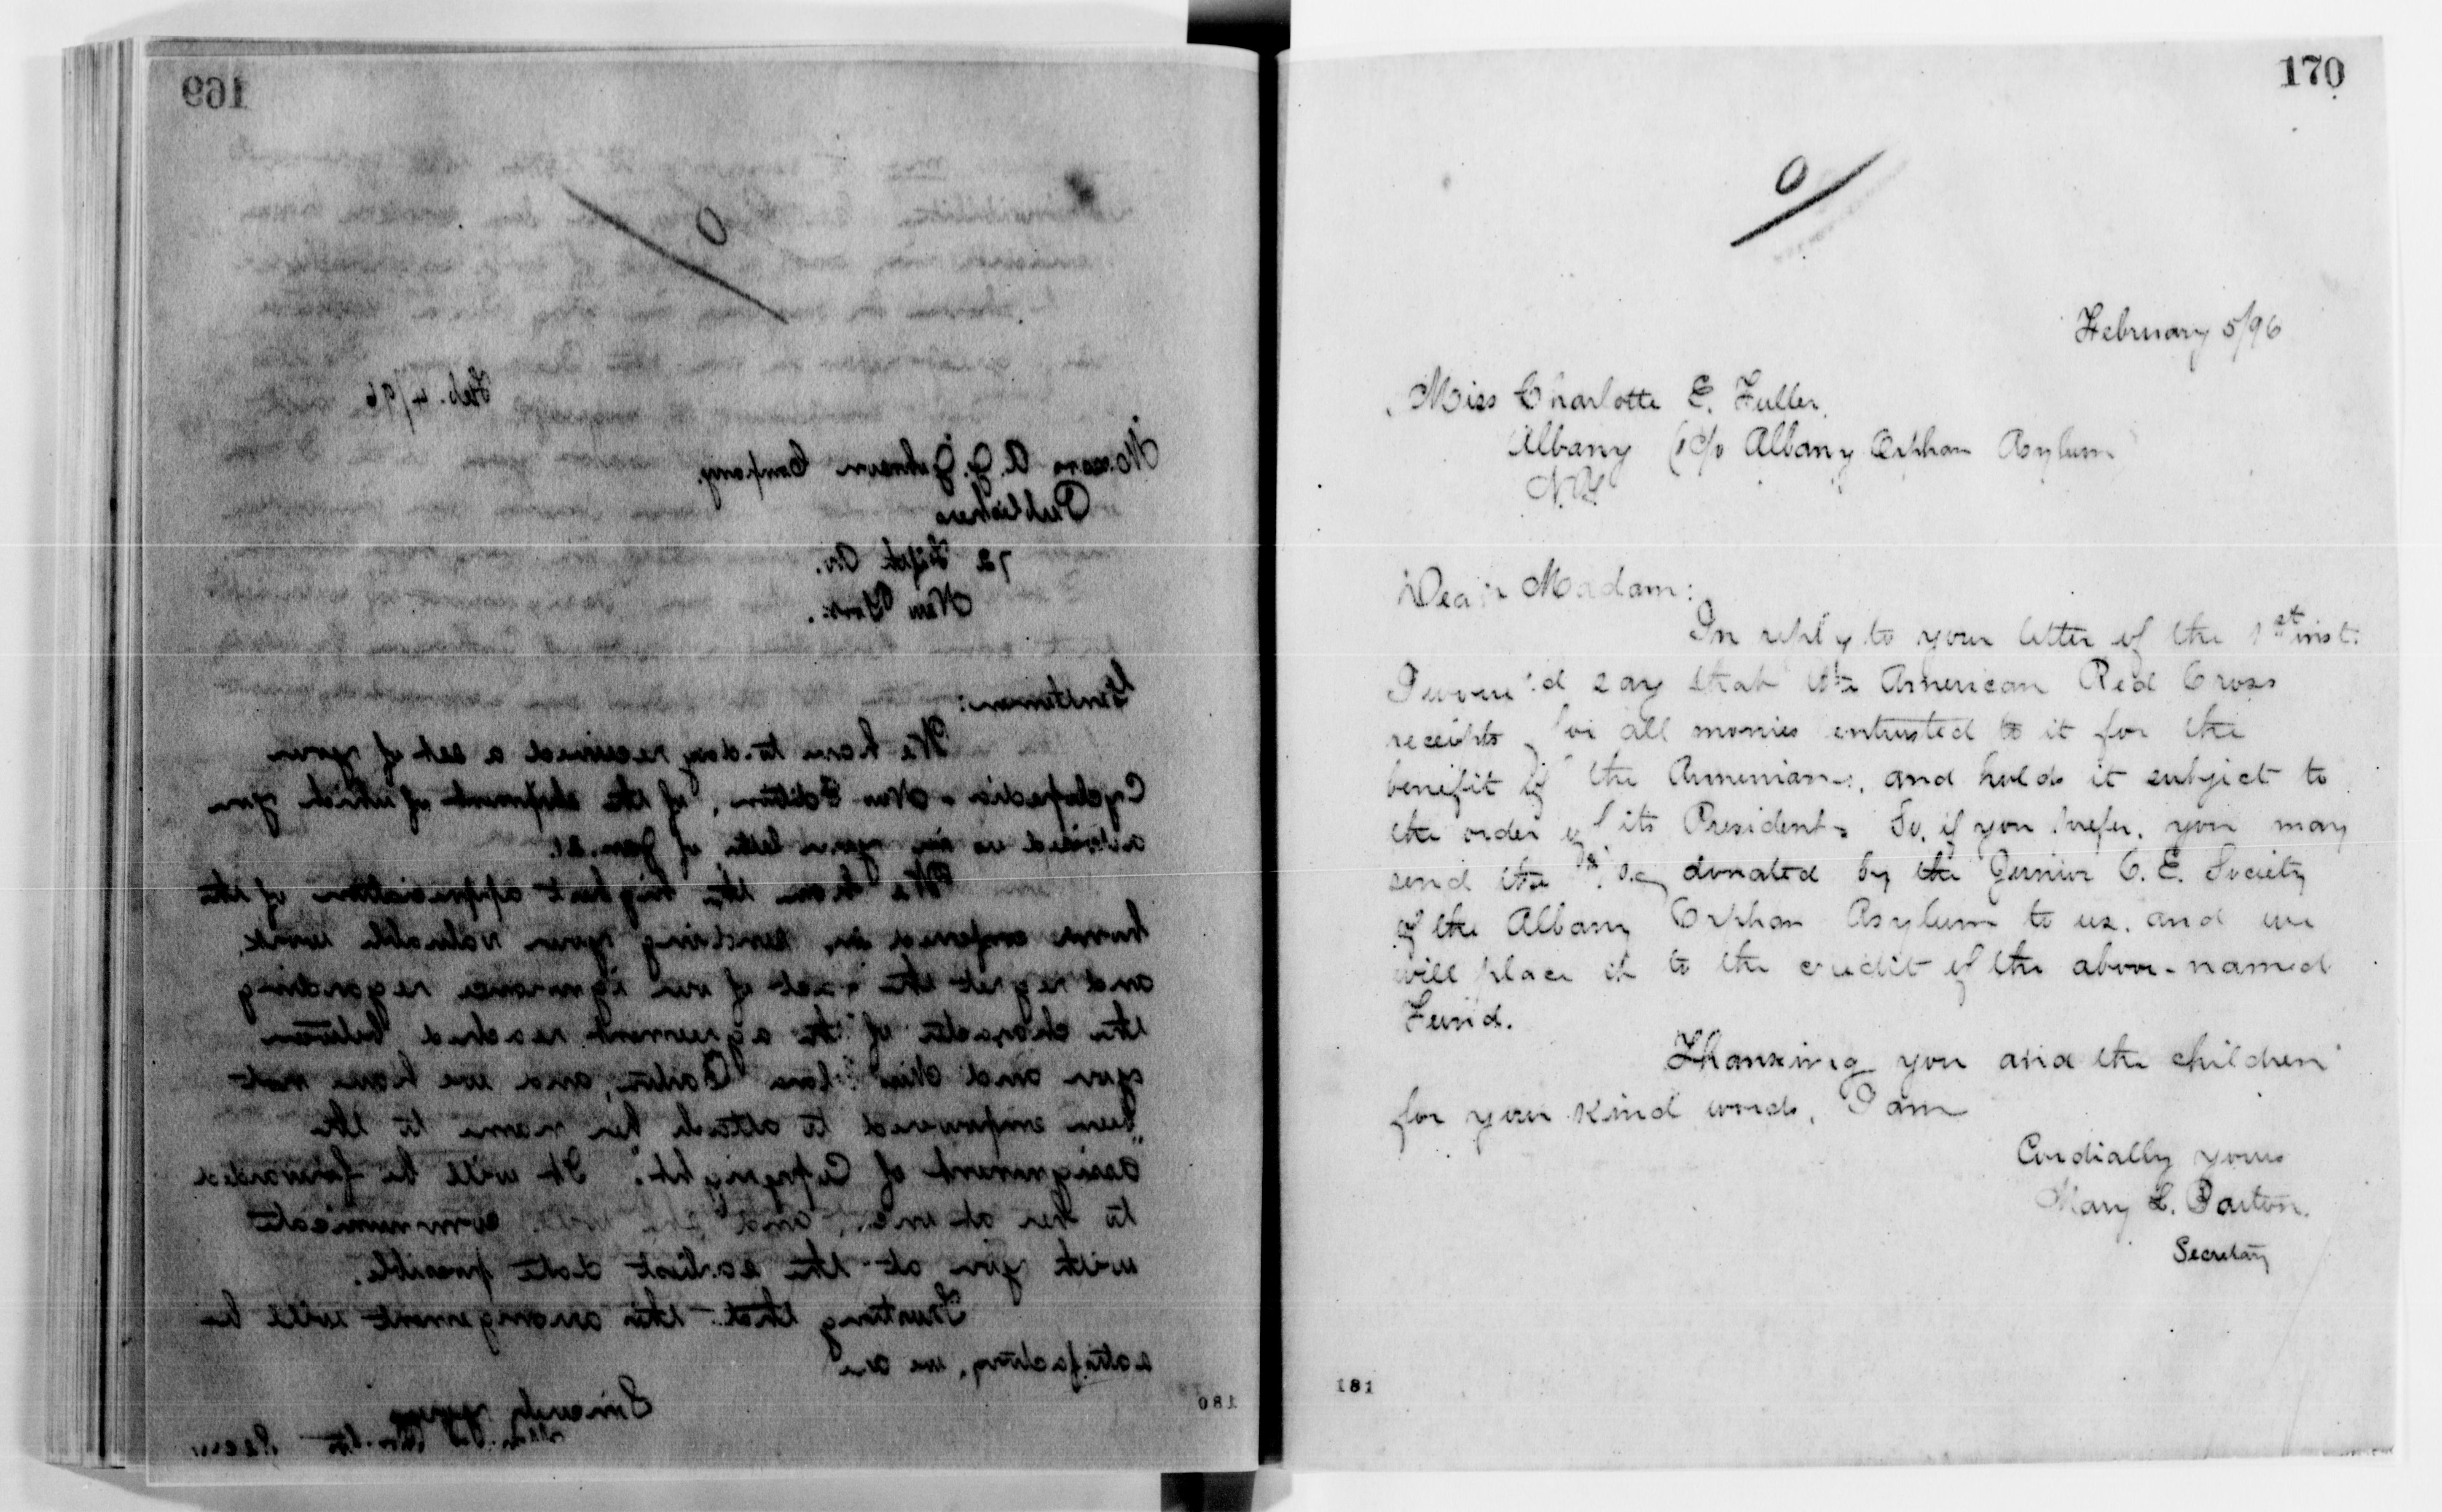 169
Feb. 4/96
Messrs A. J. Johnson Company.
Publishers
72 Fifth Av.
New York.
Gentlemen:
We have to-day received a set of your
Cyclopedia - New Edition, of the shipment of which you
advised us in your letter of Jan. 21.
We have the highest appreciation of the
honor conferred in sending your valuable work,
and regret the fact of our ignorance regarding
the character of the agreement reached between
you and Miss Clara Barton, and we have not
been empowered to attach her name to the
"assignment of Copyright". It will be forwarded
to her at once, and she will communicate
with you at the earliest date possible.
Trusting that this arrangement will be
satisfactory, we are
Sincerely yours
180
170
February 5/96
Miss Charlotte E. Fuller,
Albany (c/o Albany Orphan Asylum
N.Y.
Dear Madam:
In reply to your letter of the 1st inst.
I would say that the American Red Cross
receipts for all monies entrusted to it for the
benefit of the Armenians, and holds it subject to
the order of its President. So, if you prefer, you may
send the donated by the Junior C. E. Society
of the Albany Orphan Asylum to us, and we
will place it to the credit of the above-named
Fund.
Thanking you and the children
for your kind words, I am
Cordially yours
Mary L. Barton.
Secretary
181